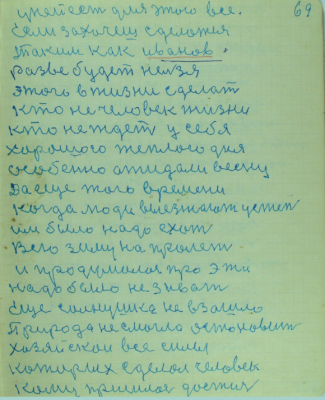 69
умеест для этого все.
Если захочеш сделатся
таким как иванов.
разве будет нелзя
этого в жизни сделат
кто не человек жизни
кто не ждет у себя
хорошого теплого дня
особенно ожидали весну
да еще того времени
когда люди
им было надо ехат
Всю зиму на пролет
и продумался про эти
надо было не зиват
Еще солнушка не взашло
Природа не смогла остоновит
хозяйской все силы
которых сделал человек
кому пришлос достич